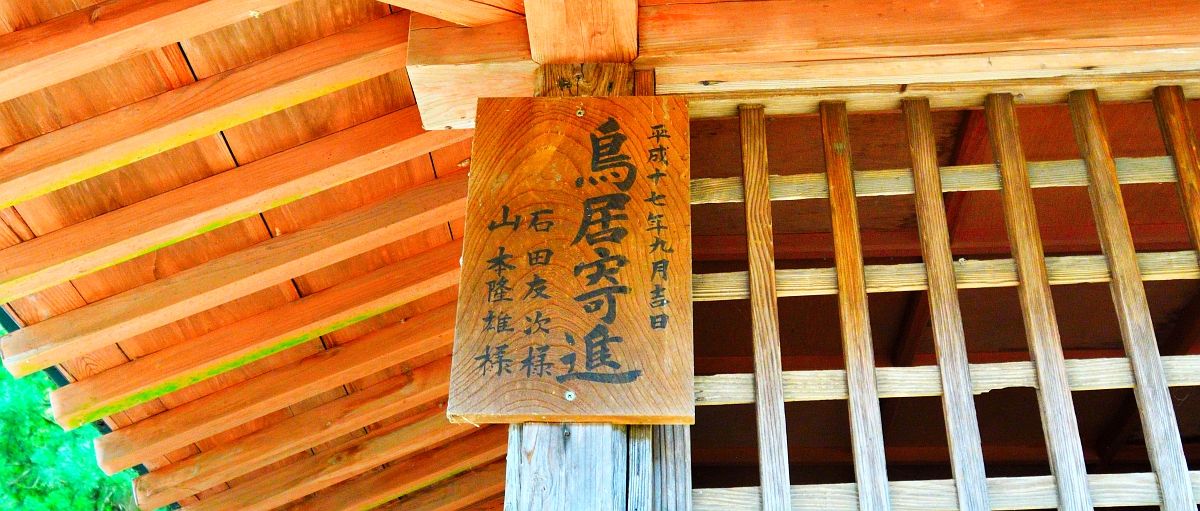 平成十七年九月吉日
鳥居寄進
石田友次様
山本隆雄様